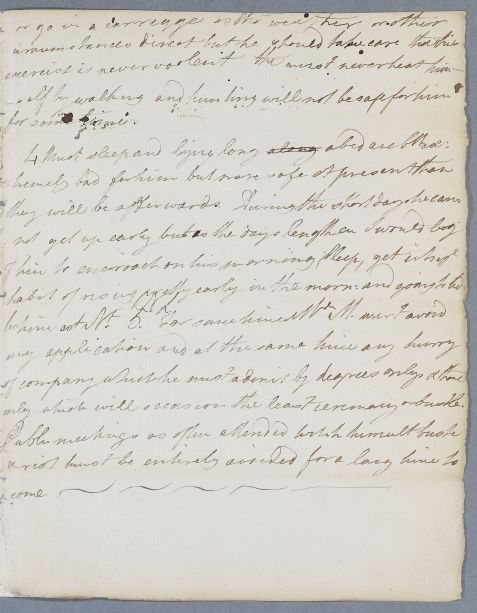 or go in a carregge as the weather or other
circumstances direct but he should take care that his
exercise is never violent He must never heat him-
-self by walking and hunting will not be safe for him
for some time.
4 Must sleep and lying long along abed are both ex:
tremely bad for him but more safe at present than
they will be afterwards. During the short days he can
not get up early but as the days lengthen I would beg
of him to encroach on his morning sleep, get in the
habit of rising pretty early in the morn: and going to bed
betime at Nt. 5. For some time Mr. M. must avoid
any application and at the same time any hurry
of company which he must admit by degrees only & those
only which will occasion the least ceremony or bustle.
Public meetings as often attended with tumult bustle
& riot must be entirely avoided for a long time to
come